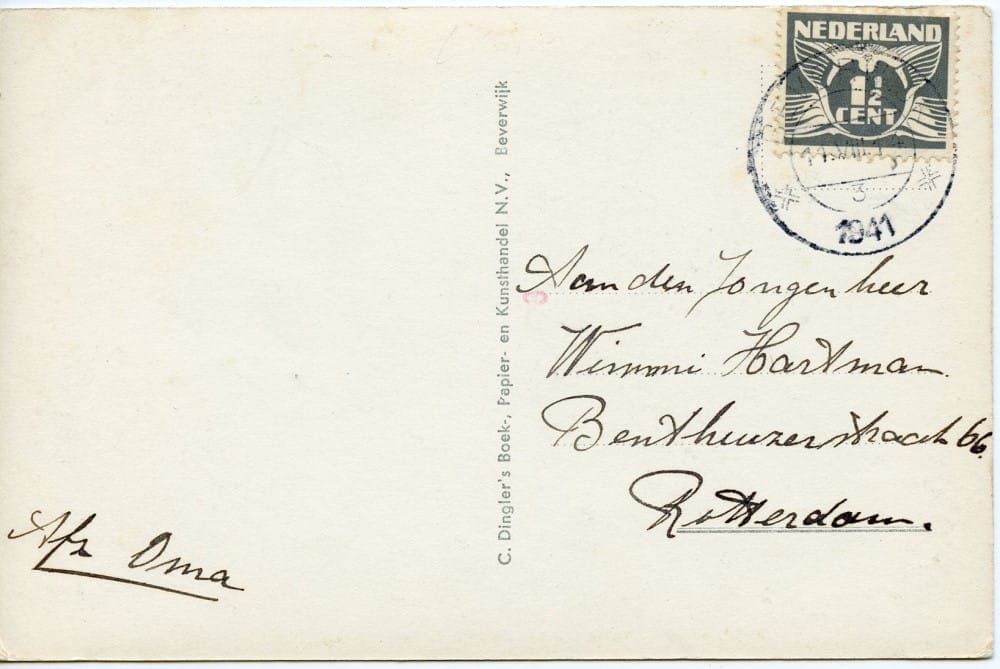 NEDERLAND
1½
CENT
3
1941
C. Dingler's Boek-, Papier- en Kunsthandel N.V., Beverwijk
Aan den Jongenheer
Wimmi Hartman.
Benthuizerstraat 66.
Rotterdam.
Afz Oma